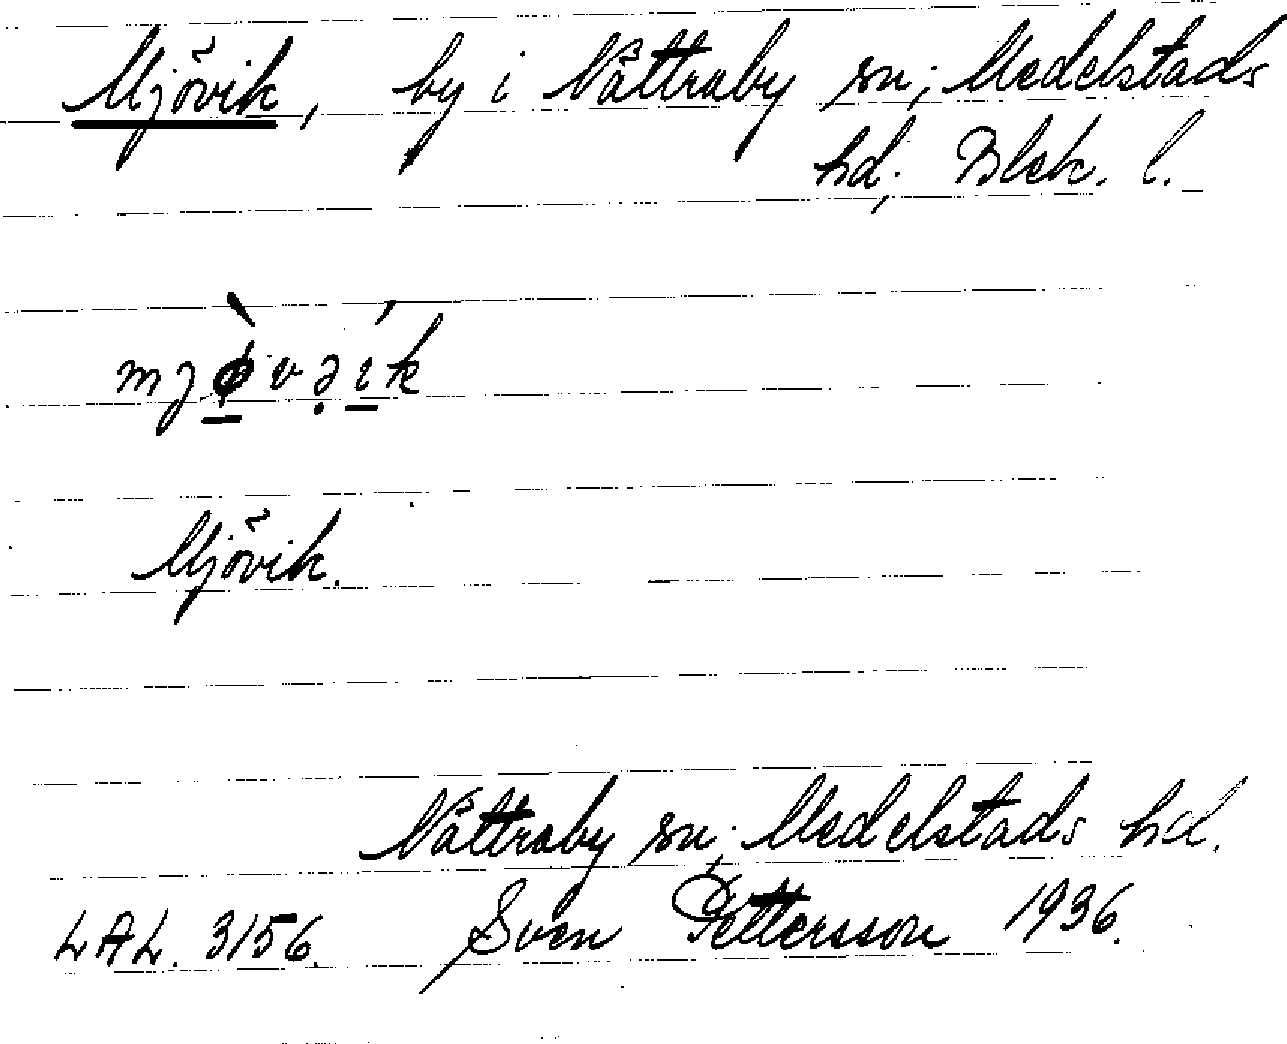 Mjövik, by i Nättraby sn; Medelstads
hd; Blek. l.
mjøvək
Mjövik.
Nättraby sn; Medelstads hd.
LAL. 3156. Sven Pettersson 1936.